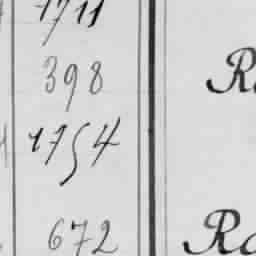 1711
398
1754
672